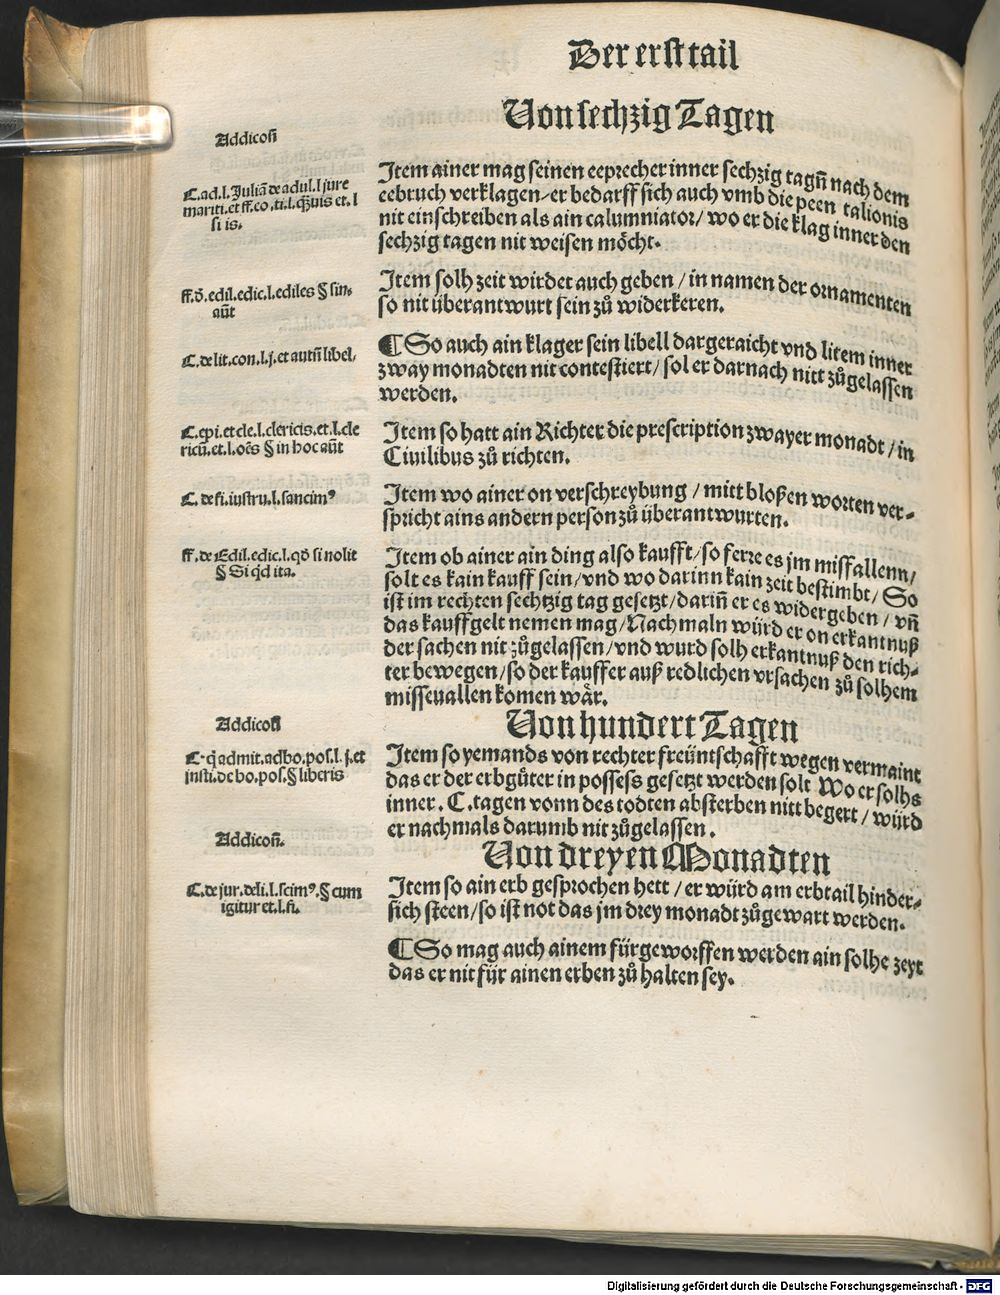 Der erst tail
Von sechzig Tagen
Addicoñ
C. ad. l. Juliã de adul. l jure
mariti. et ff. eo. ti. l. q̃zuis et. l
si is.
Item ainer mag seinen eeprecher inner sechzig tagñ nach dem
eebruch verklagen / er bedarff sich auch vmb die peen talionis
nit einschreiben als ain calumniator / wo er die klag inner den
sechzig tagen nit weisen möcht.
ff. õ. edil. edic. l. ediles § sin⸗
aũt
Item solh zeit wirdet auch geben / in namen der ornamenten
so nit überantwurt sein zů widerkeren.
C. de lit. con. l. j. et autñ libel.
¶ So auch ain klager sein libell dargeraicht vnd litem inner
zway monadten nit contestiert / sol er darnach nitt zůgelassen
werden.
C. epi. et cle. l. clericis. et. l. cle
ricũ. et. l. oẽs § in hoc aũt
Item so hatt ain Richter die prescription zwayer monadt / in
Ciuilibus zů richten.
C. de fi. iustru. l. sancimꝰ
Item wo ainer on verschreybung / mitt bloßen worten ver⸗
spricht ains andern person zů überantwurten.
ff. de Edil. edic. l. qõ si nolit
§ Si q̃d ita.
Item ob ainer ain ding also kaufft / so ferre es jm missfallenn /
solt es kain kauff sein / vnd wo darinn kain zeit bestimbt / So
ist im rechten sechtzig tag gesetzt / dariñ er es widergeben / vñ
das kauffgelt nemen mag / Nachmaln würd er on erkantnuß
der sachen nit zůgelassen / vnd wurd solh erkantnuß den rich⸗
ter bewegen / so der kauffer auß redlichen vrsachen zů solhem
misseuallen komen wär.
Addicoñ
Von hundert Tagen
C. q̃ admit. ad bo. pos. l. j. et
insti. de bo. pos. § liberis
Item so yemands von rechter freüntschafft wegen vermaint
das er der erbgüter in possess gesetzt werden solt Wo er solhs
inner. C. tagen vonn des todten absterben nitt begert / würd
er nachmals darumb nit zůgelassen.
Addicoñ.
Von dreyen Monadten
C. de jur. deli. l. scimꝰ. § cum
igitur et. l. fi.
Item so ain erb gesprochen hett / er würd am erbtail hinder⸗
sich steen / so ist not das jm drey monadt zůgewart werden.
¶ So mag auch ainem fürgeworffen werden ain solhe zeyt
das er nit für ainen erben zů halten sey.
Digitalisierung gefördert durch die Deutsche Forschungsgemeinschaft - DFG